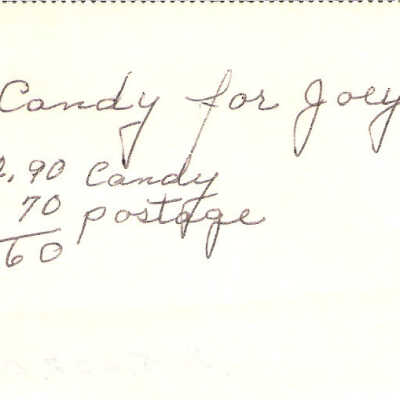 Candy for Joey
.90 Candy
70 postage
60